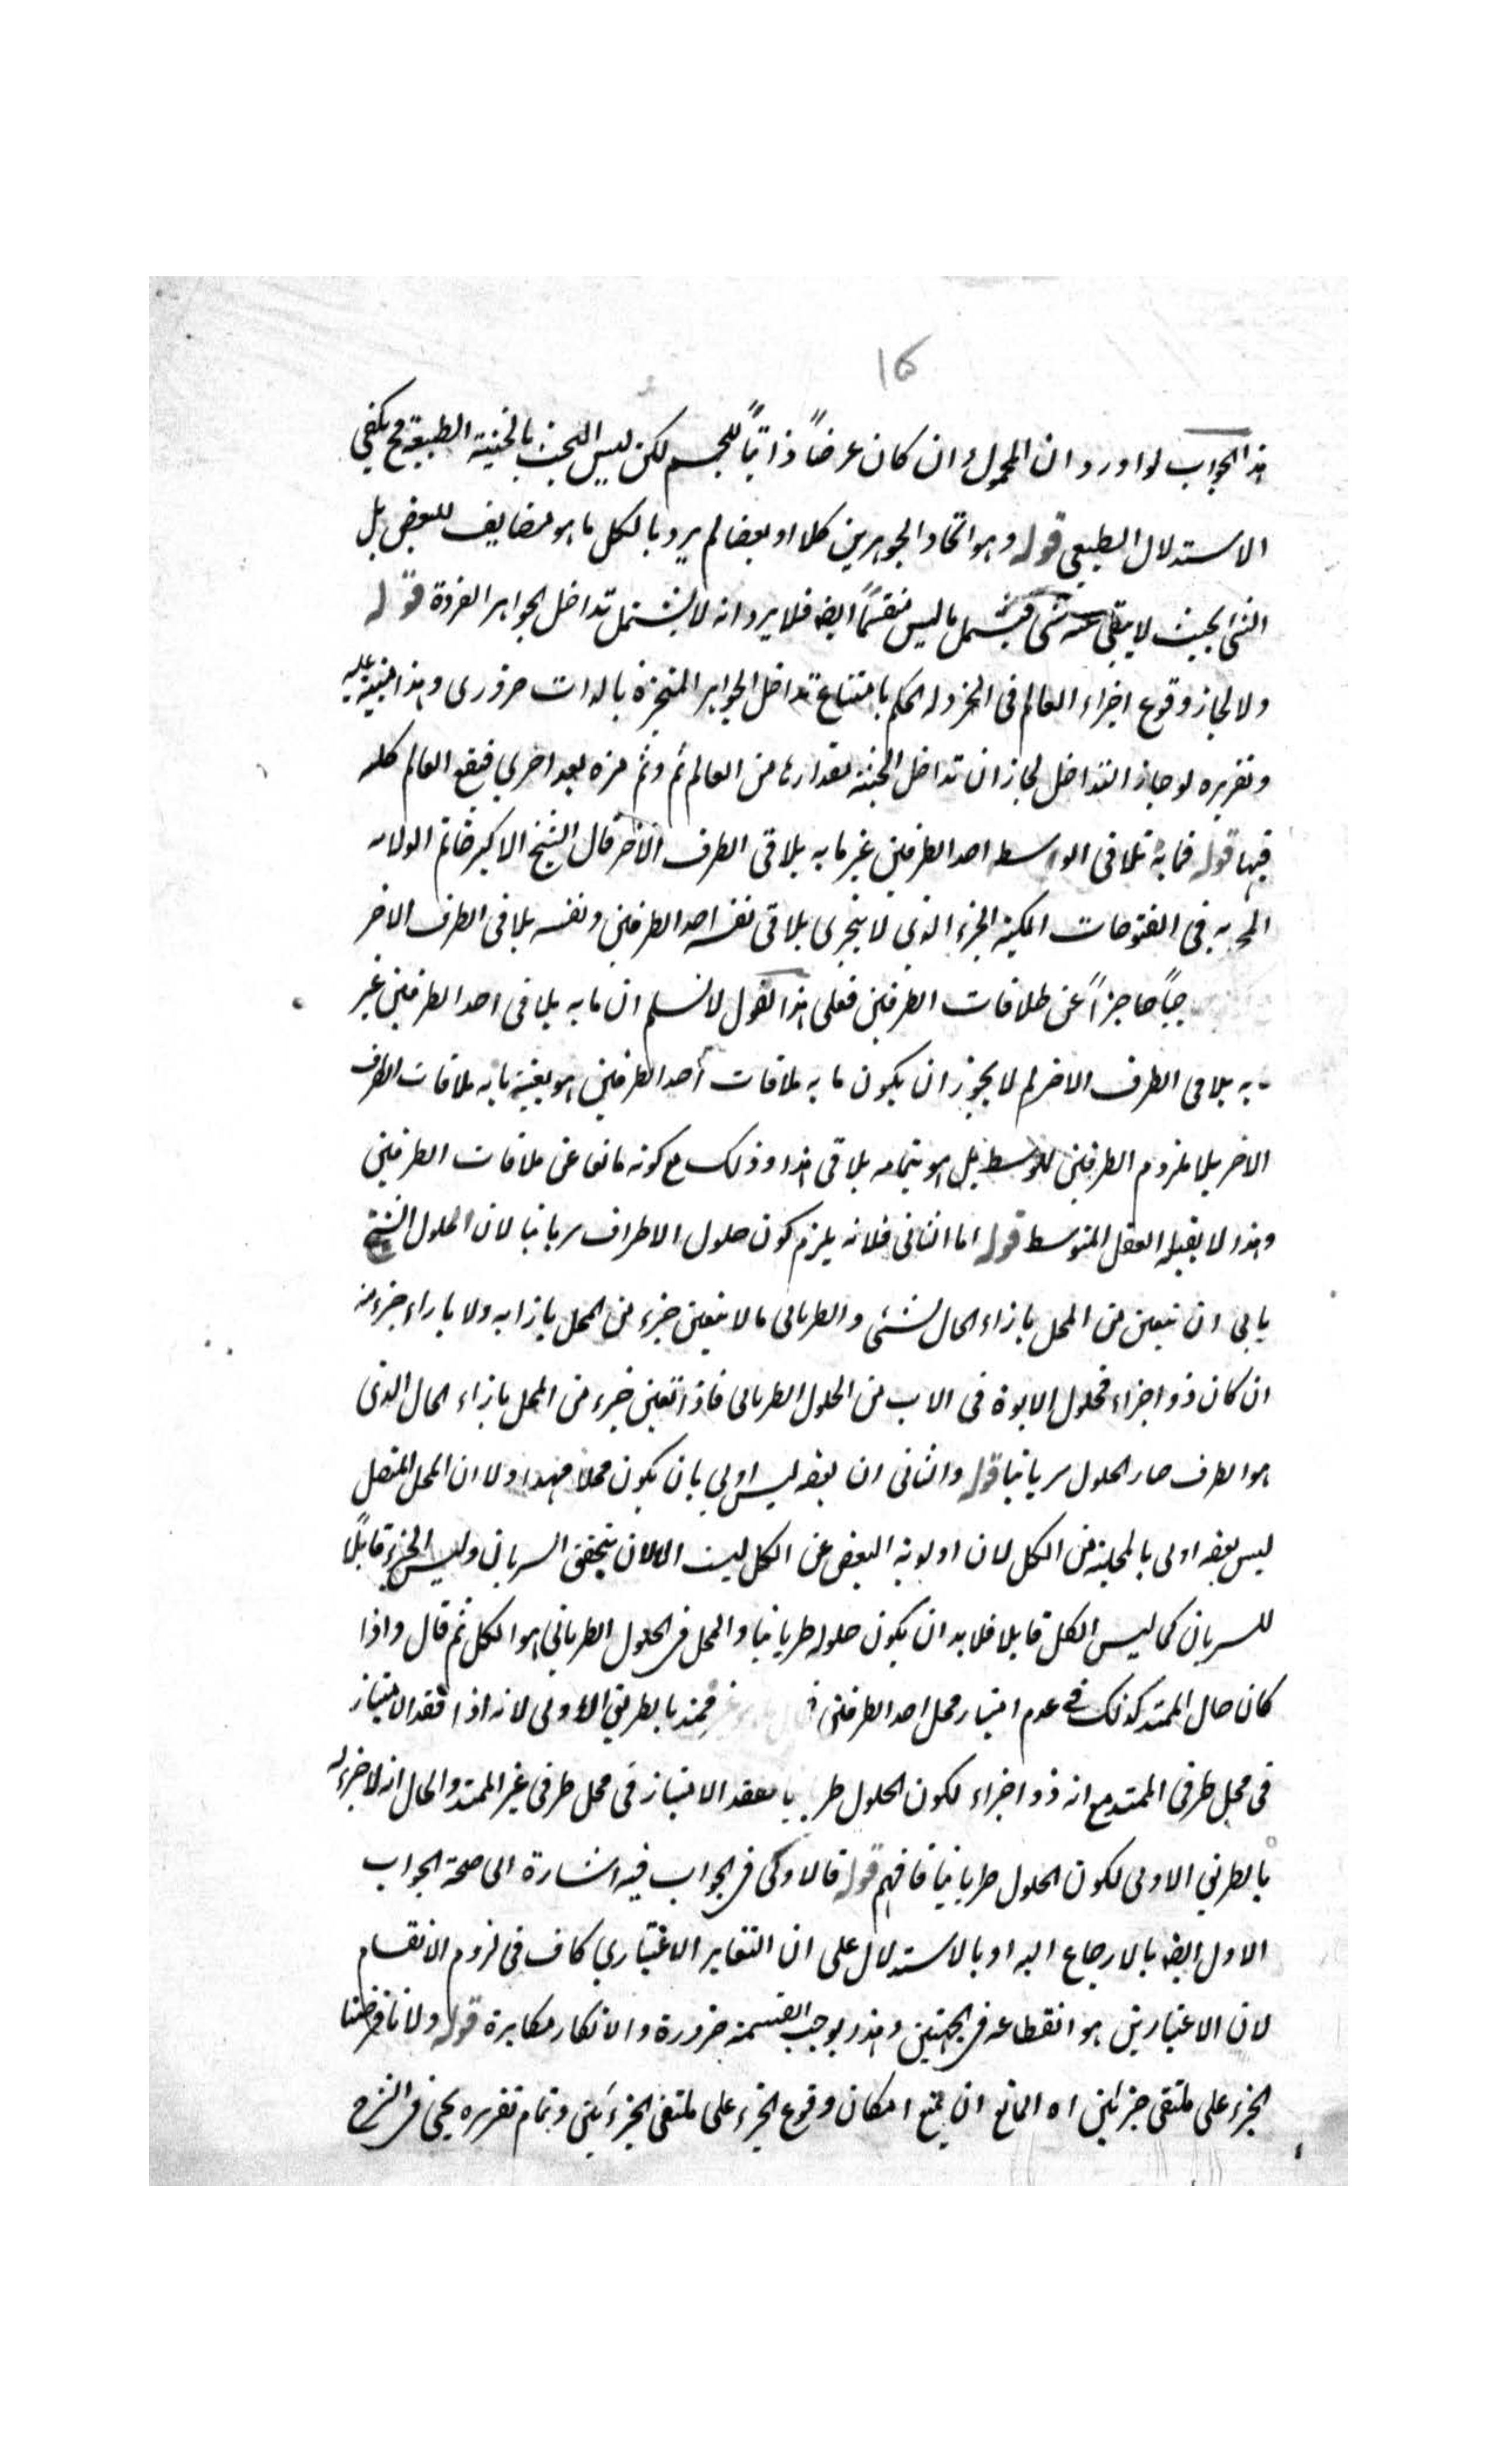 16
هذا الجواب لو اورد ان المحمول وان كان عرضاً ذاتياً للجسم لكن ليس البحث بالحيثية الطبيعية فح يكفي
الاستدلال الطبيعي قوله وهو اتحاد الجوهرين كلا او بعضا لم يرد بالكل ما هو مضايف للبعض بل
الشئ بحيث لا يبقى عنه شئ فيشمل ما ليس منقسماً ايضه فلا يرد انه لا يشتمل تداخل الجواهر الفردة قوله
ولا لجاز وقوع اجزاء العالم في الخردله الحكم بامتناع تداخل الجواهر المتحيزة بالذات ضروري وهذا تنبيه عليه
وتقريره لو جاز التداخل لجاز ان تداخل الحبة مقدارها من العالم ثم وثم مرة بعد اخرى فيقع العالم كله
فيها قوله فما به تلاقى الوسط احد الطرفين غير ما به يلاقى الطرف الآخر قال الشيخ الاكبر خاتم الولاية
المحمديه في الفتوحات المكية الجزء الذي لا يتجزى يلاقى نفسه احد الطرفين ونفسه يلاقى الطرف الاخر
حاجزاً عن ملاقات الطرفين فعلى هذا القول لا نسلم ان ما به يلاقى احد الطرفين غير
به يلاقى الطرف الاخر لم لا يجوز ان يكون ما به ملاقات احد الطرفين هو بعينه ما به ملاقات الطرف
الاخر بلا لزوم الطرفين للوسط بل هو بتمامه يلاقى هذا وذلك مع كونه مانعا عن ملاقات الطرفين
وهذا لا يقبله العقل المتوسط قوله اما الثاني فلانه يلزم كون حلول الاطراف سريانيا لان الحلول
ان يتعين من المحل بازاء الحال شئ والطرياني ما لا يتعين جزء من المحل بازائه ولا بازاء جزء منه
ان كان ذو اجزاء فحلول الابوة في الاب من الحلول الطرياني فاذا تعين جزء من المحل بازاء الحال الذي
هو الطرف صار الحلول سريانيا قوله والثاني ان بعضه ليس اولى بان يكون محلا لهذا ولا ان المحل المتصل
ليس بعضه اولى بالمحلية من الكل لان اولوية البعض عن الكل ليست الا لان يتحقق السريان وليس الجزء قابلاً
للسريان كما ليس الكل قابلا فلا بد ان يكون حلوله طريانيا والمحل في الحلول الطرياني هو الكل ثم قال واذا
كان حال الممتد كذلك في عدم امتياز محل احد الطرفين غير ممتد بالطريق الاولى لانه اذا فقد الامتياز
في محل طرفى الممتد مع انه ذو اجزاء لكون الحلول طريانيا فقد الامتياز في محل طرفى غير الممتد والحال انه لا جزء له
بالطريق الاولى لكون الحلول طريانيا فافهم قوله فالاولى في الجواب فيه اشارة الى صحة الجواب
الاول ايضه بالارجاع اليه او بالاستدلال على ان التغاير الاعتباري كاف في لزوم الانقسام
لان الاعتبارين هو انقطاعه في الجهتين وهذا يوجب القسمة ضرورة والانكار مكابرة قوله ولانا فرضنا
الجزء على ملتقى جزئين اه المانع ان يمنع امكان وقوع الجزء على ملتقى الجزئين وتمام تقريره يجئ في الشرح